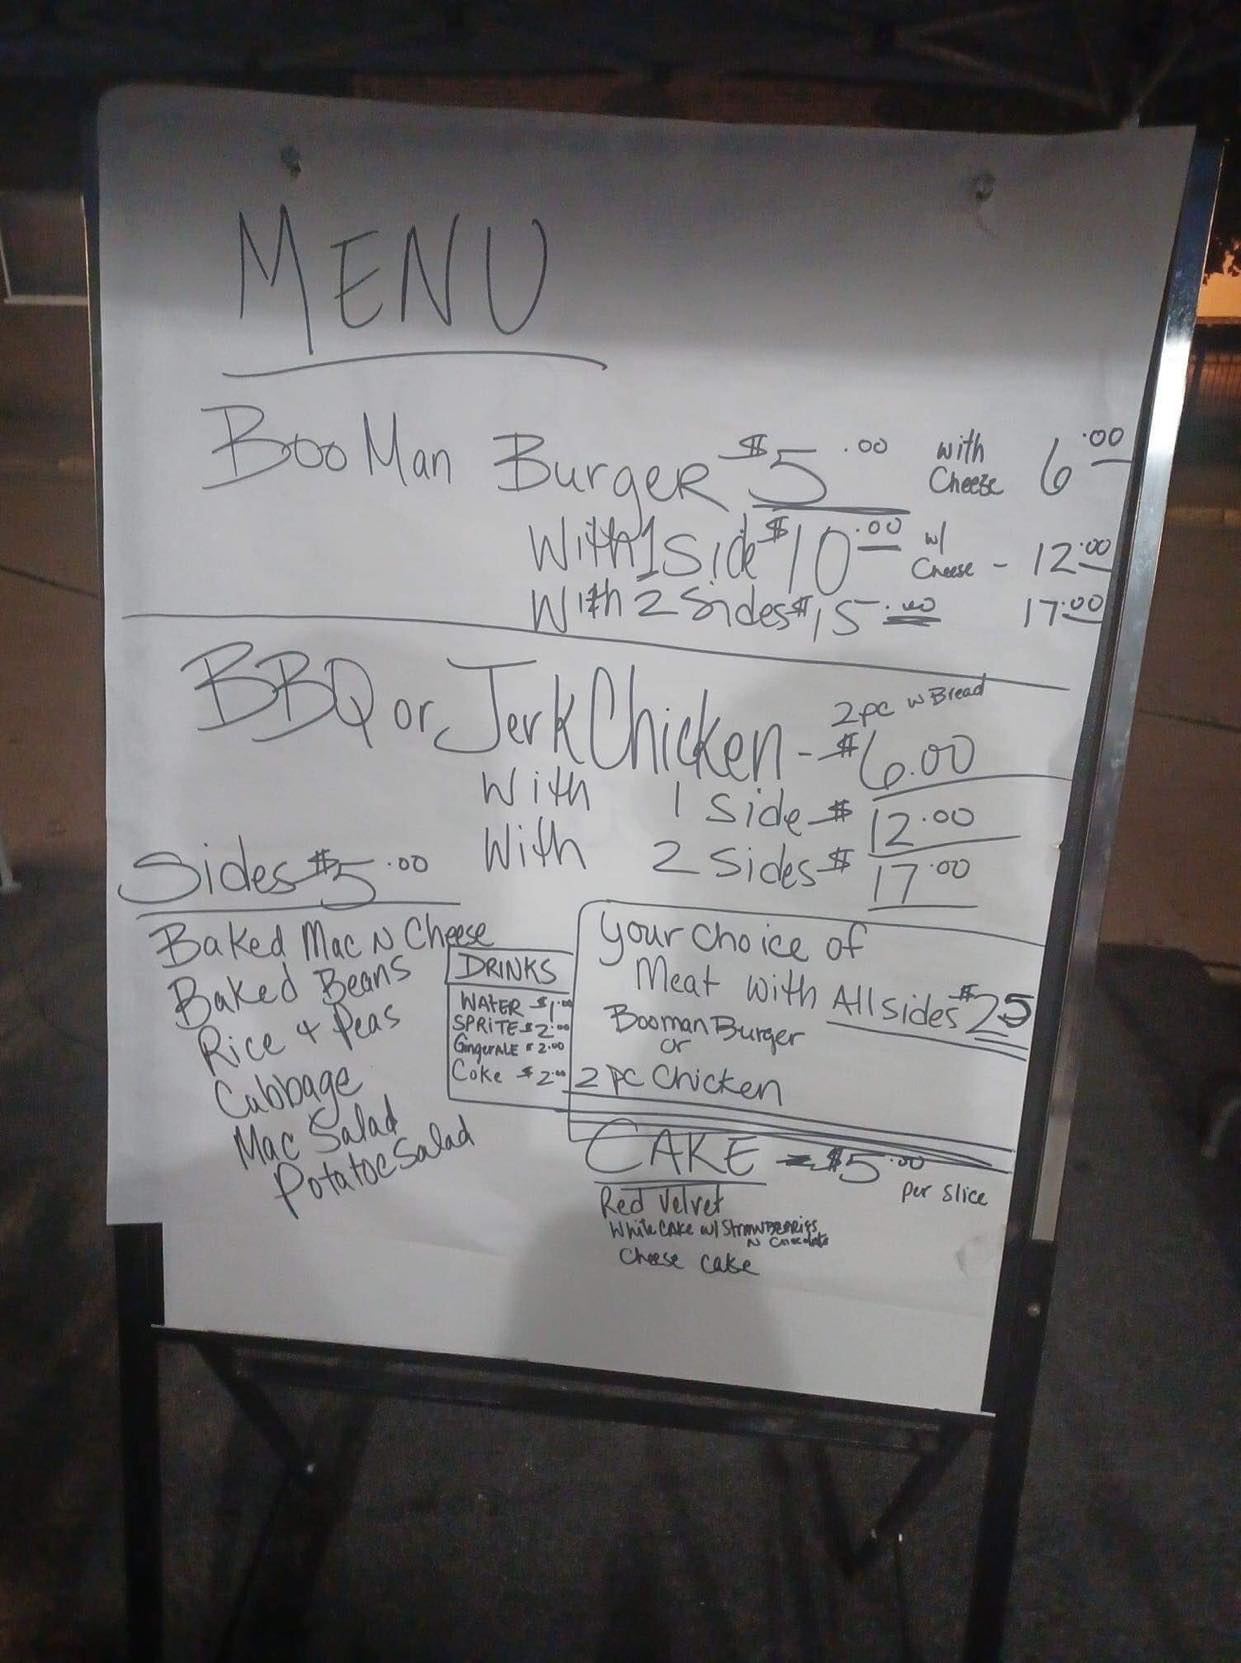 MENU
Boo Man Burger $5.00 with Cheese 6.00
With 1 Side $10.00 w/ Cheese - 12.00
With 2 Sides $15.00 17.00
BBQ or Jerk Chicken - 2pc w Bread $6.00
With 1 Side $12.00
With 2 Sides $17.00
Sides $5.00
Baked Mac N Cheese
Baked Beans
Rice + Peas
Cabbage
Mac Salad
Potatoe Salad
DRINKS
WATER $1.00
SPRITE $2.00
GingerALE $2.00
Coke $2.00
Your Choice of
Meat with All sides $25
Booman Burger
or
2 pc Chicken
CAKE - $5.00
per slice
Red Velvet
White CAKE w/ STRAWBERRIES
N Chocolate
Cheese cake